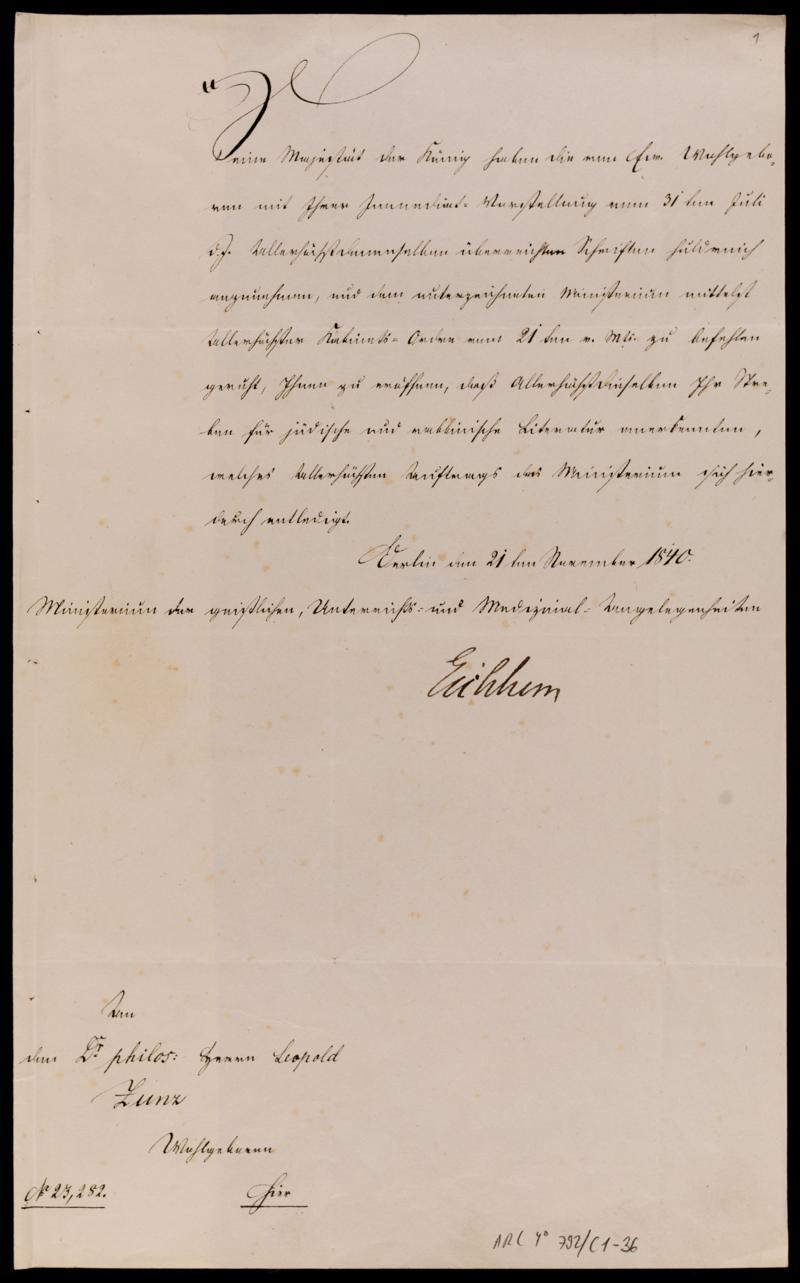 1
Seine Majestät der König haben die von Ew. Wohlgebo-
ren mit Ihrer Immediat-Vorstellung vom 31ten Juli
d.J. Allerhöchstdemselben überreichten Schriften huldreich
anzunehmen, und dem unterzeichneten Ministerium mittelst
Allerhöchster Kabinets-Ordre vom 21ten v. Mts. zu befehlen
geruht, Ihnen zu eröffnen, daß Allerhöchstdieselben Ihr Stre-
ben für jüdische und rabbinische Literatur anerkennten,
welches Allerhöchsten Auftrags das Ministerium sich hier-
durch entledigt.
Berlin den 21ten November 1840.
Ministerium der geistlichen, Unterrichts- und Medizinal-Angelegenheiten
Eichhorn
An
den Dr philos: Herrn Leopold
Zunz
Wohlgeboren
No 23,282.
Hier
ARC 4° 792/C1-36